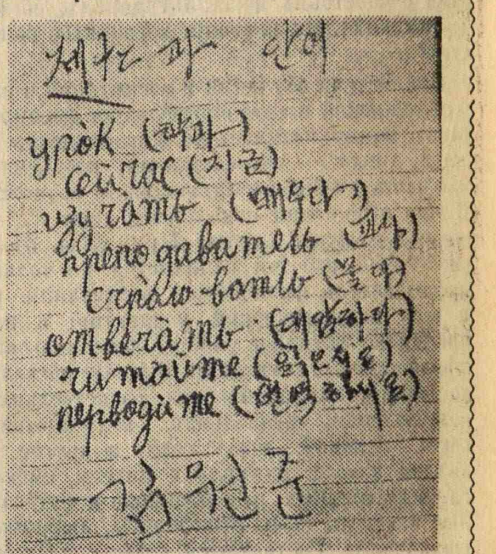 제 과 단어
уро̀к (학과)
сейчас (지금)
изучать (배우다)
преподаватель (교사)
спра̀шивать
отвеча̀ть (대답하다)
читайте (읽으시오)
перевоdѝте (번역하시오)
김원준